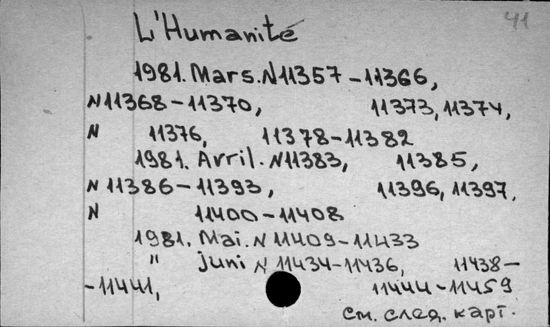 41
L'Humanité
1981. Mars. N11357-11366,
N11368-11370, 11373, 11374,
N 11376, 11378-11382
1981. Avril. N11383, 11385,
N 11386-11393, 11396, 11397,
N 11400-11408
1981. Mai. N 11409-11433
" juni N 11434-11436, 11438-
-11441, 11444-11459
См. след. карт.